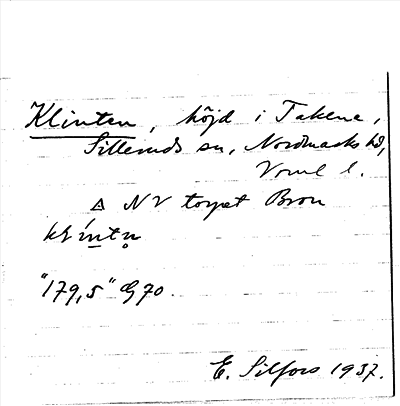 Klinten, höjd i Takene,
Silleruds sn, Nordmarks hd,
Vrml l.
△ NV torpet Bron
klíntn̥
"179,5" G70.
E. Silfors 1937.